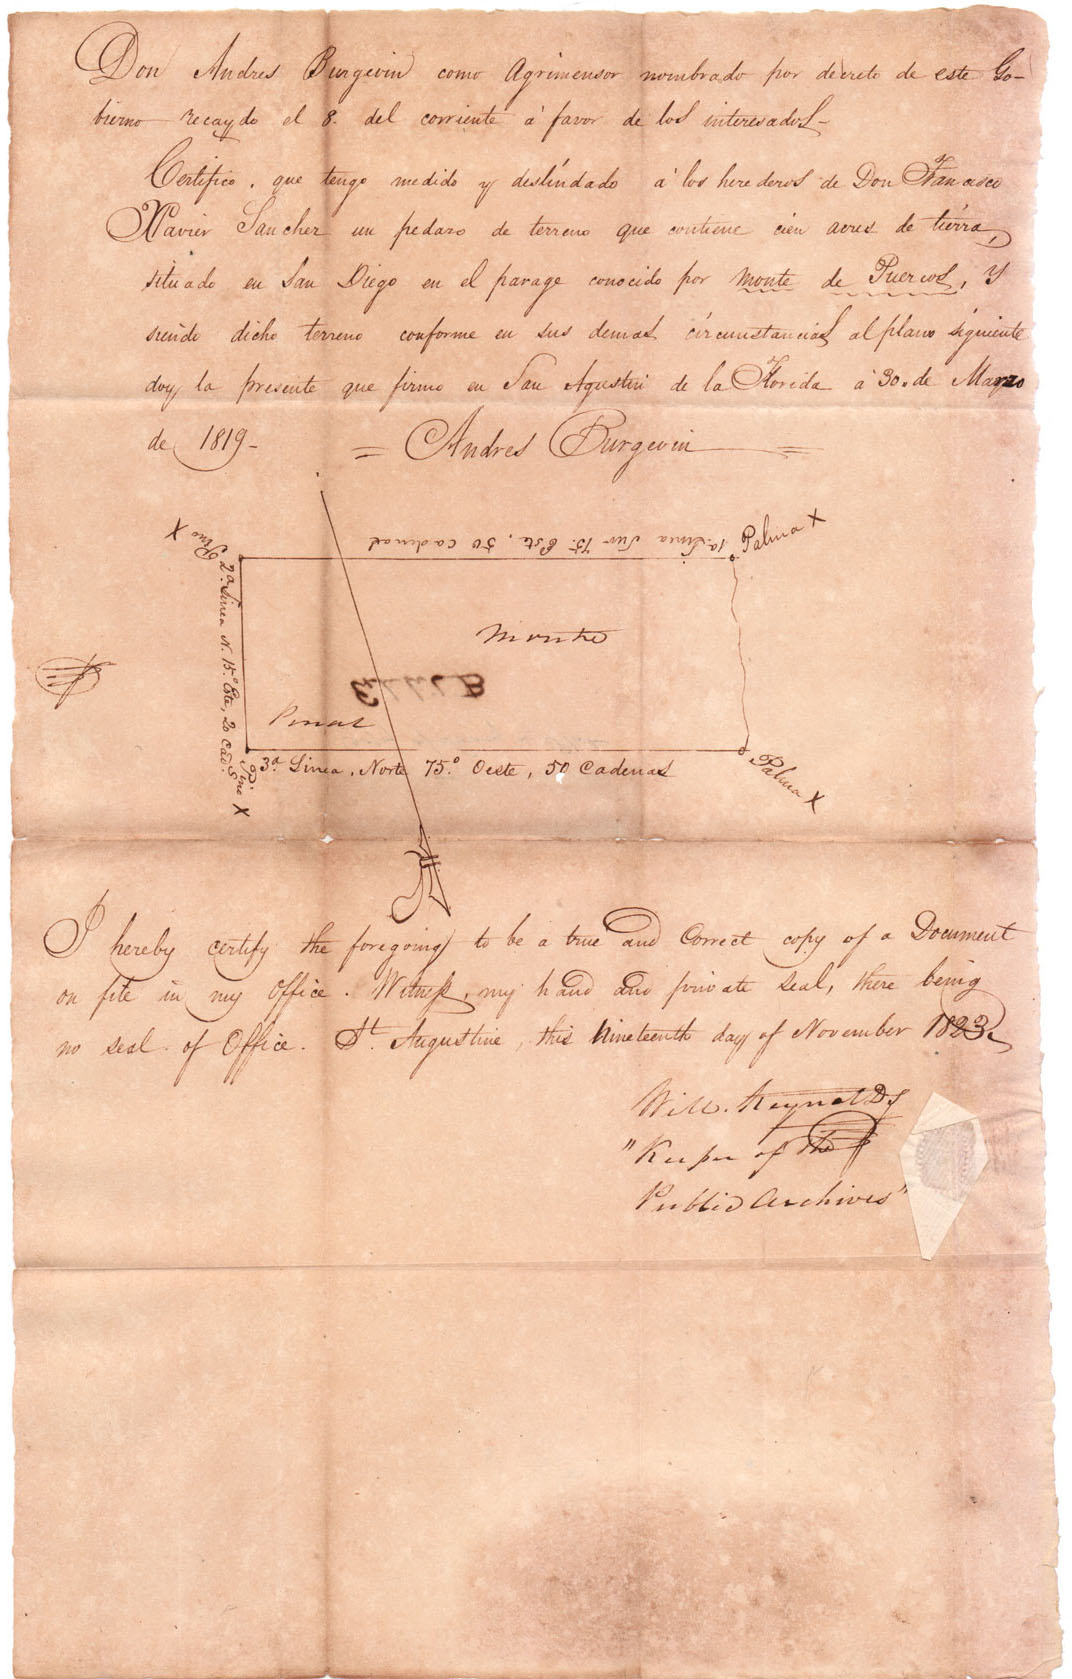 Don Andres Burgevin como Agrimensor nombrado por decreto de este Go-
bierno recaydo el 8. del corriente á favor de los interesados-
Certifico, que tengo medido y deslindado á los herederos de Don Francisco
Xavier Sanchez un pedazo de terreno que contiene cien acres de tierra,
situado en San Diego en el parage conocido por Monte de Puercos, y
siendo dicho terreno conforme en sus demas circunstancias al plano siguiente
doy la presente que firmo en San Agustin de la Florida á 30. de Marzo
de 1819-
= Andres Burgevin =
Pino X
1a. Linea Sur 75.° Este, 50 cadenas
Palma X
2.a Linea N. 15.° Este, 20 Cad.s
Monte
Pinal
3.a Linea, Norte 75.° Oeste, 50 Cadenas
Pino X
Palma X
I hereby certify the foregoing to be a true and Correct copy of a Document
on file in my Office. Witness, my hand and private seal, there being
no seal of Office. St. Augustine, this Nineteenth day of November 1823.
Will. Reynolds
"Keeper of the
Public Archives"